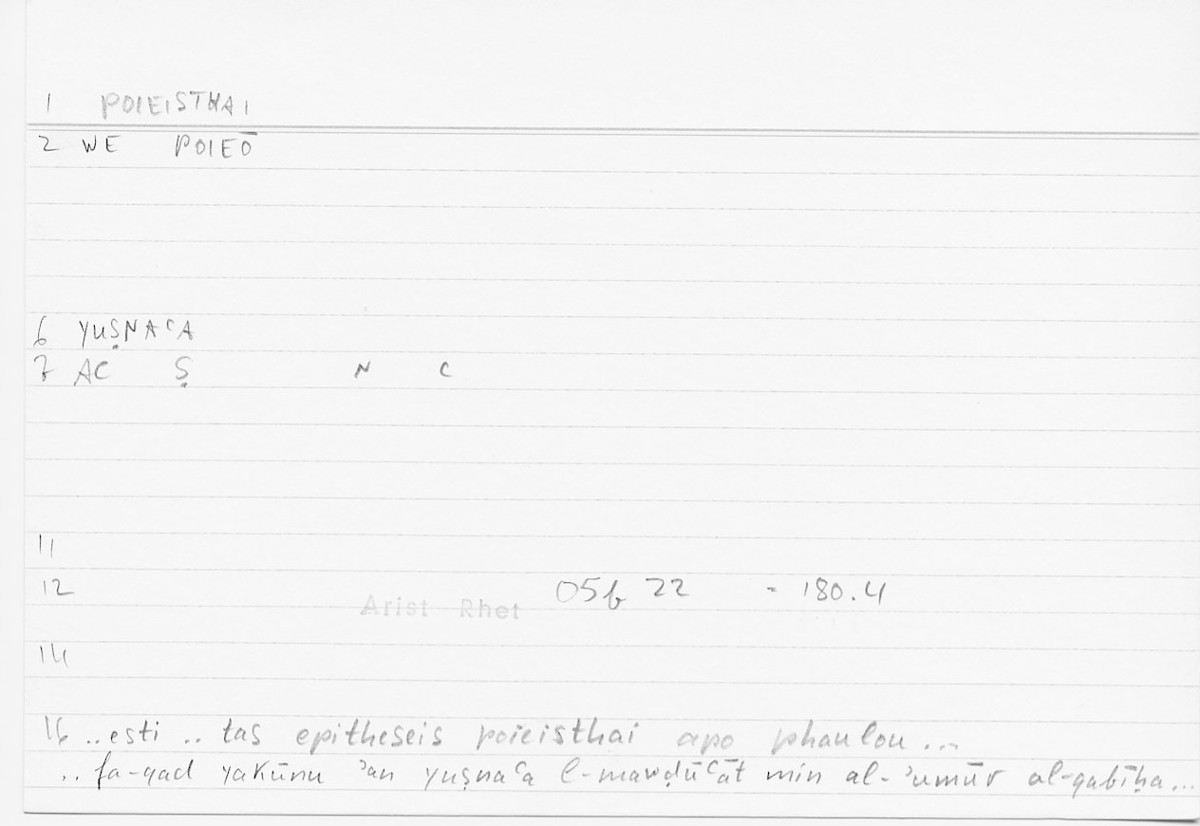 1 POIEISTHAI
2 WE POIEŌ
6 YUṢNAʿA
7 AC Ṣ N C
11
12 05b 22 - 180.4
Arist Rhet
14
16 ..esti .. tas epitheseis poieisthai apo phaulou ...
.. fa-qad yakūnu ʾan yuṣnaʿa l-mawḍūʿāt min al-ʾumūr al-qabīḥa...